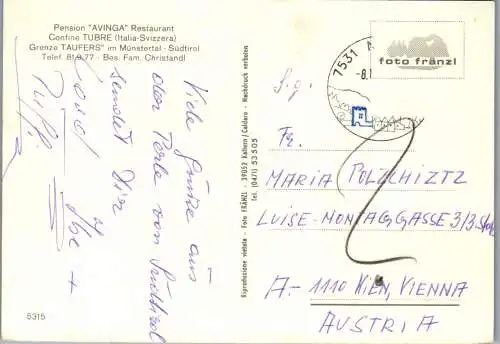 Pension "AVINGA" Restaurant
Confine TUBRE (Italia-Svizzera)
Grenze TAUFERS' im Münstertal - Südtirol
Telef. 81 9 77 - Bes. Fam. Christandl
Viele Grüße aus
der Perle von Südtirol
sendet Dir
Ilse +
5315
Riproduzione vietata - Foto FRÄNZL - 39052 Kaltern / Caldaro - Nachdruck verboten
Tel. (0471) 53 5 05
7531
foto fränzl
Fr.
MARIA POLZCHIZTZ
LUISE-MONTAGGASSE 3/3.
A-1110 WIEN, VIENNA
AUSTRIA